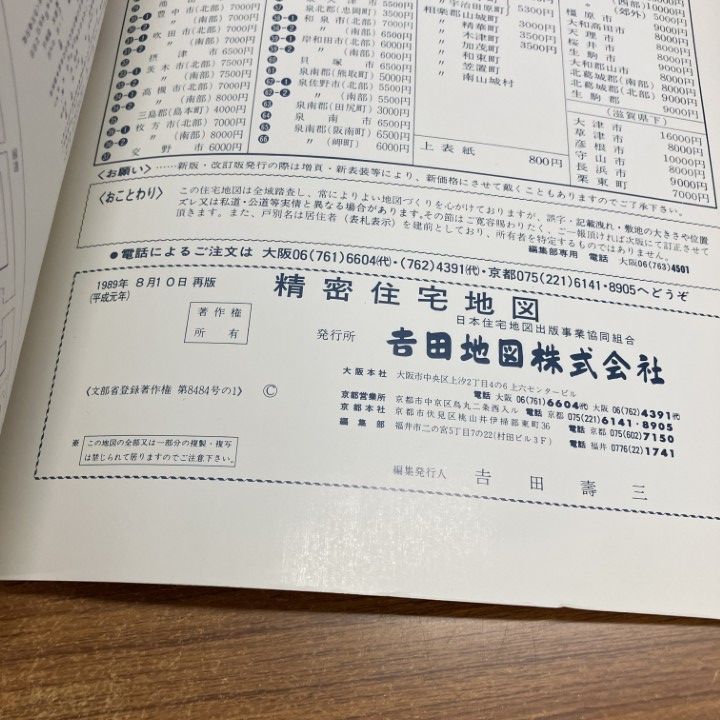 豊中市(北部) 7000円
〃(南部) 7000円
吹田市(北部) 7000円
〃(南部) 7000円
摂津市 6500円
茨木市(北部) 7500円
〃(南部) 7500円
高槻市(北部) 7000円
〃(南部) 8000円
三島郡(島本町) 4000円
枚方市(北部) 7000円
〃(南部) 8000円
交野市 6500円
泉北郡(忠岡町) 3500円
和泉市(北部) 6500円
〃(南部) 6500円
岸和田市(北部) 6500円
〃(南部) 6500円
貝塚市 6500円
泉南郡(熊取町) 5500円
泉佐野市(北部) 5500円
〃(南部) 5500円
泉南郡(田尻町) 3000円
泉南市 6500円
泉南郡(阪南町) 6500円
〃(岬町) 6000円
〃宇治田原町
相楽郡山城町 5300円
〃精華町 3500円
〃木津町
〃加茂町 3500円
〃和束町
〃笠置町
〃南山城村
上表紙 800円
〃(西部) 10000円
〃(郊外) 5000円
橿原市 9000円
大和高田市 7000円
天理市 8000円
桜井市 8000円
生駒市 9000円
大和郡山市 9000円
北葛城郡(南部) 8000円
北葛城郡(北部) 8000円
生駒郡 9000円
(滋賀県下)
大津市 16000円
草津市 8000円
彦根市 8000円
守山市 10000円
長浜市 8000円
栗東町 9000円
7000円
〈お願い〉……新版・改訂版発行の際は増頁・新表装等により、新価格にさせて戴くこともありますのでご了承下さい。
〈おことわり〉
この住宅地図は全域踏査し、常によりよい地図づくりを心がけておりますが、誤字・記載洩れ・敷地の大きさや位置
ズレ又は私道・公道等実情と異なる場合があります。その節はご寛容賜わりたく、ご一報頂ければ次版にて訂正させて
頂きます。また、戸別名は居住者(表札表示)を建前としており、所有者を特定するものではありません。
編集部専用 電話 大阪06(763)4501
●電話によるご注文は 大阪06(761)6604(代)・(762)4391(代)・京都075(221)6141・8905へどうぞ
1989年 8月10日 再版
(平成元年)
著作権
所有
精密住宅地図
日本住宅地図出版事業協同組合
発行所
吉田地図株式会社
〈文部省登録著作権 第8484号の1〉 ©
大阪本社 大阪市中央区上汐2丁目4の6上六センタービル
電話 大阪 06(761)6604(代) 大阪 06(762)4391(代)
京都営業所 京都市中京区烏丸二条西入ル 電話 京都 075(221)6141・8905
京都本社 京都市伏見区桃山井伊掃部東町36 電話 京都 075(602)7150
編集部 福井市二の宮5丁目7の22(村田ビル3F) 電話 福井 0776(22)1741
※ この地図の全部又は一部分の複製・複写
は禁じられて居りますのでご注意下さい。
編集発行人 吉田壽三